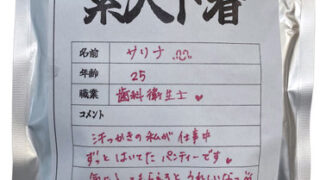 素人下着
名前 サリナ
年齢 25
職業 歯科衛生士♥
コメント
汗っかきの私が仕事中
ずっとはいてたパンティーです♥